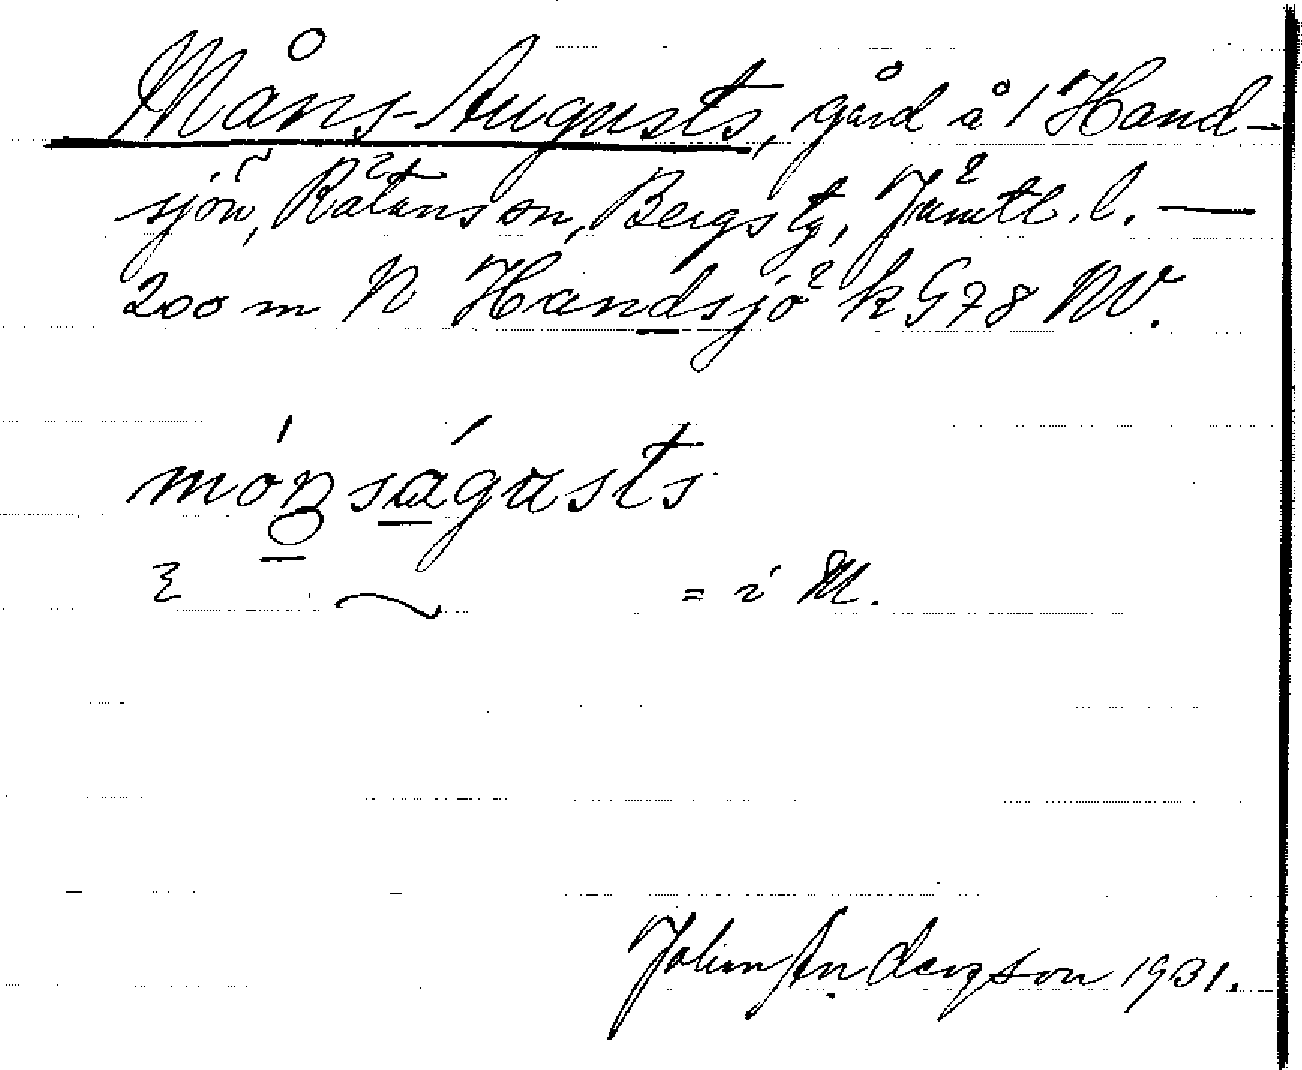 Måns-Augusts, gård å 1 Hand-
sjön, Rätans sn, Bergs tg, Jämtl. l. —
200 m N Handsjö k G 78 NV.
mónságusts
= i M.
Johan Andersson 1931.